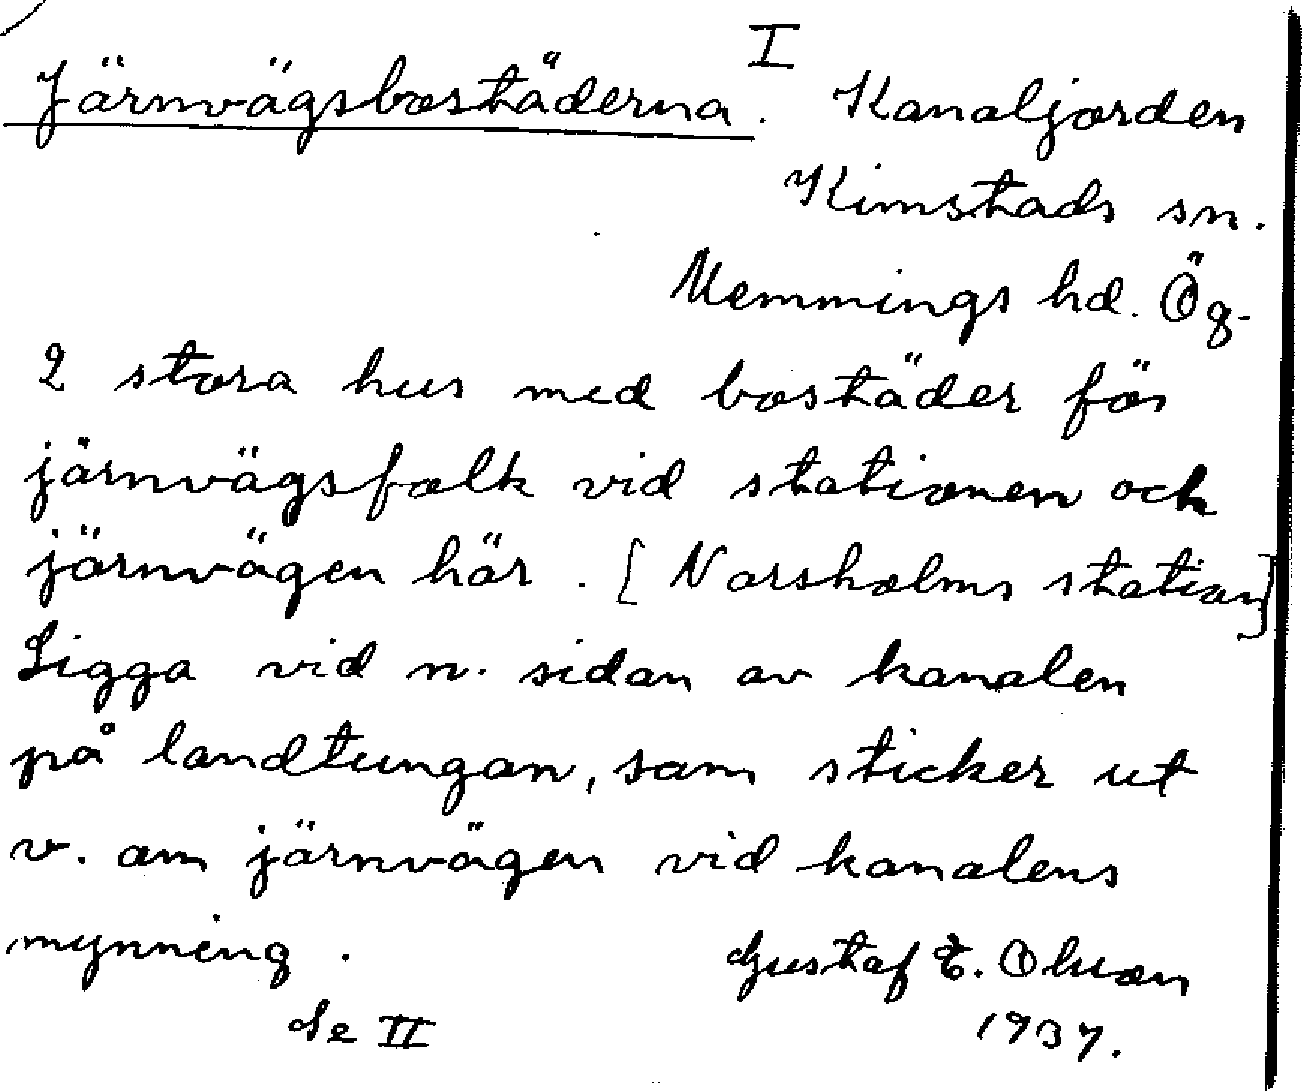 I
Järnvägsbostäderna. Kanaljorden
Kimstads sn.
Memmings hd. Ög.
2 stora hus med bostäder för
järnvägsfolk vid stationen och
järnvägen här. [Norsholms station]
Ligga vid n. sidan av kanalen
på landtungan, som sticker ut
v. om järnvägen vid kanalens
mynning.
Gustaf E. Olson
Se II
1937.